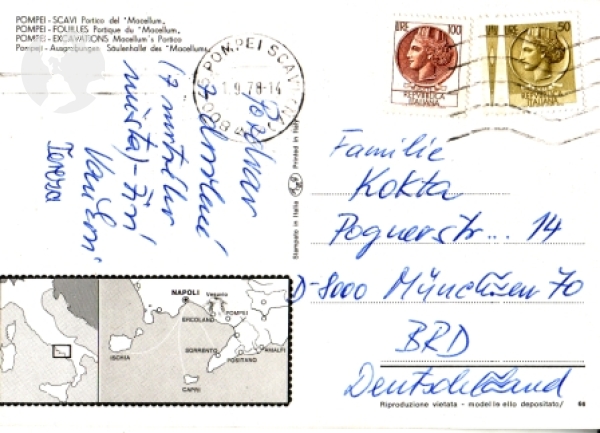 POMPEI - SCAVI Portico del "Macellum„
POMPEI - FOUILLES Portique du "Macellum„
POMPEI - EXCAVATIONS Macellum's Portico
Pompeji - Ausgrabungen Säulenhalle des "Macellums„
POMPEI SCAVI
1.9.78-14
LIRE 100
REPUBBLICA
ITALIANA
LIRE 50
REPUBBLICA
ITALIANA
Pozdrav
z
Stampato in Italia
Printed in Italy
Familie
Kokta
Pognerstr... 14
D-8000 München 70
BRD
Deutschland
NAPOLI
Vesuvio
ERCOLANO
POMPEI
ISCHIA
SORRENTO
POSITANO
AMALFI
CAPRI
Riproduzione vietata - modello depositato/ 66